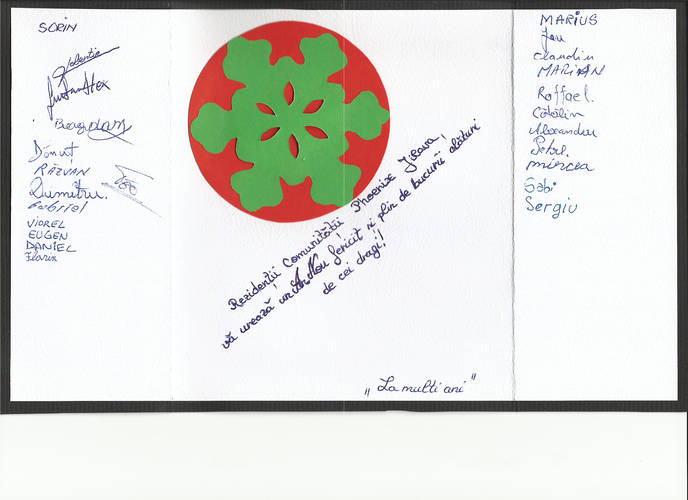 SORIN
Valentin
Alex
Dănuț
RĂZVAN
Dumitru.
Gabriel
VIOREL
EUGEN
DANIEL
Florin
Rezidenții Comunității Phoenix Jilava,
vă urează un An Nou fericit și plin de bucurii alături
de cei dragi!
„La multi ani"
MARIUS
Claudiu
MARIAN
Raffael.
Cătălin
Alexandru
Petre.
Mircea
Gabi
Sergiu